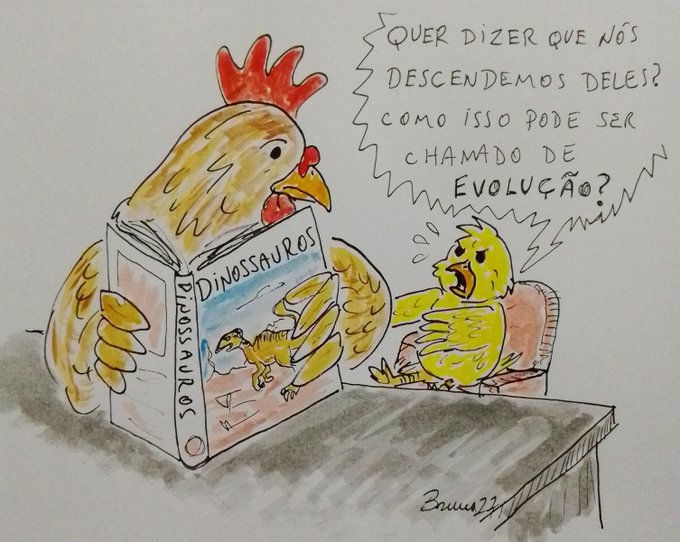 QUER DIZER QUE NÓS
DESCENDEMOS DELES?
COMO ISSO PODE SER
CHAMADO DE
EVOLUÇÃO?
DINOSSAUROS
DINOSSAUROS